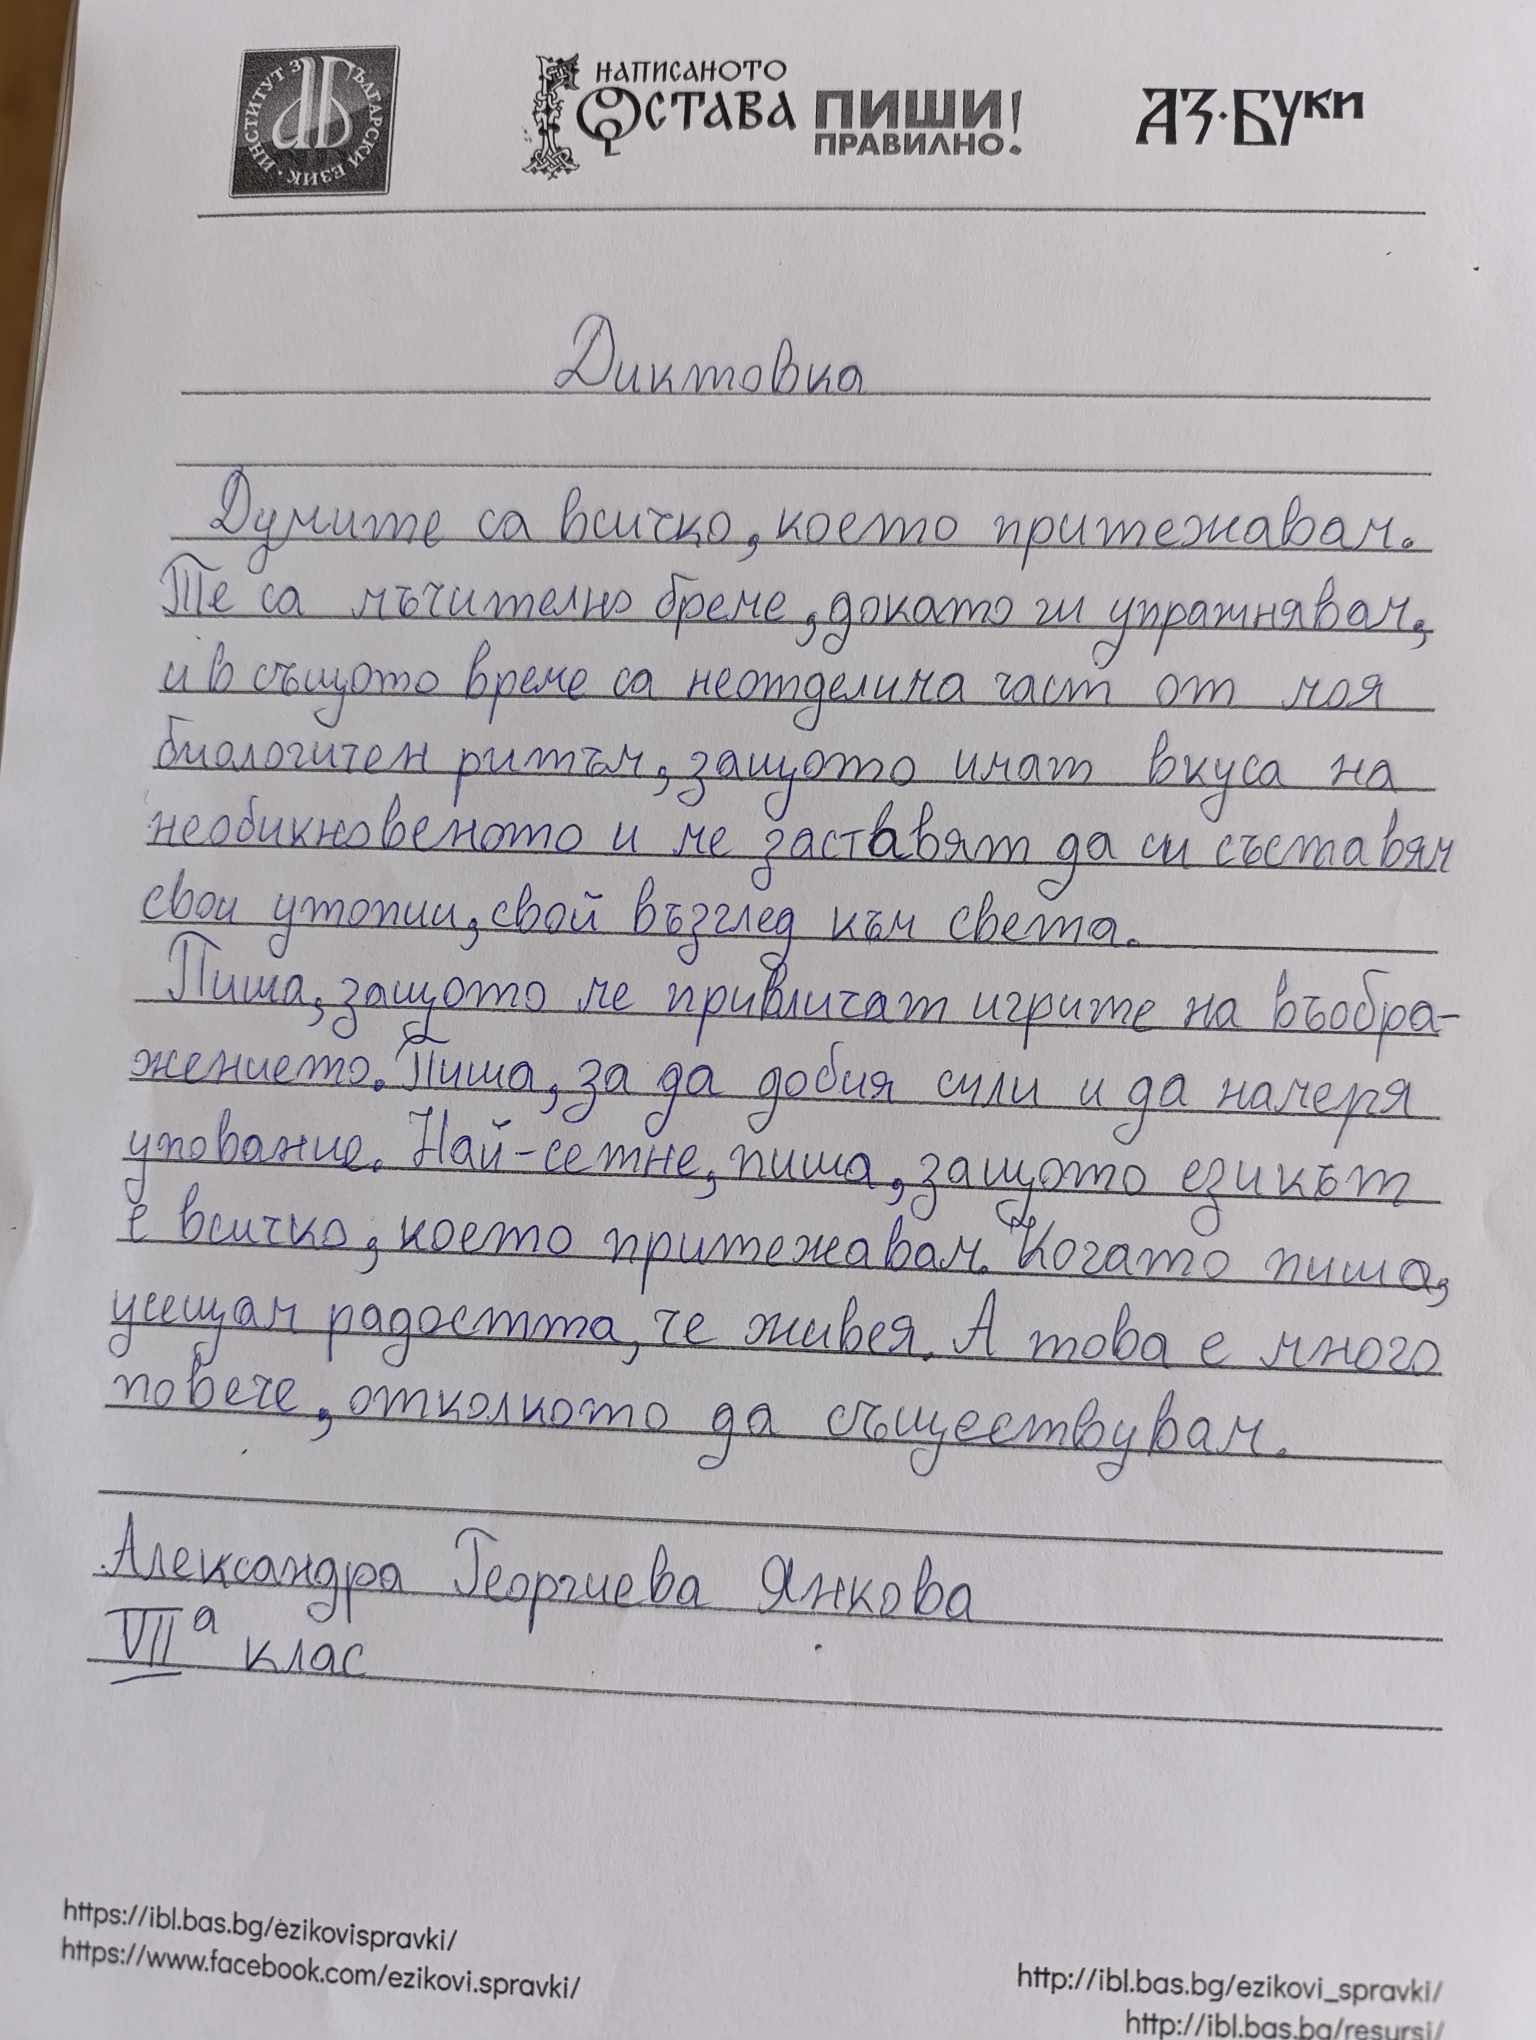 ИНСТИТУТ ЗА БЪЛГАРСКИ ЕЗИК
НАПИСАНОТО
ОСТАВА ПИШИ
ПРАВИЛНО!
АЗ·БУКИ
Диктовка
Думите са всичко, което притежавам.
Те са мъчително бреме, докато ги упражнявам,
и в същото време са неотделима част от моя
биологичен ритъм, защото имат вкуса на
необикновеното и ме заставят да си съставям
свои утопии, свой възглед към света.
Пиша, защото ме привличат игрите на въобра-
жението. Пиша, за да добия сили и да намеря
упование. Най-сетне, пиша, защото езикът
е всичко, което притежавам. Когато пиша,
усещам радостта, че живея. А това е много
повече, отколкото да съществувам.
Александра Георгиева Янкова
VII а клас
https://ibl.bas.bg/ezikovispravki/
https://www.facebook.com/ezikovi.spravki/
http://ibl.bas.bg/ezikovi_spravki/
http://ibl.bas.bg/resursi/